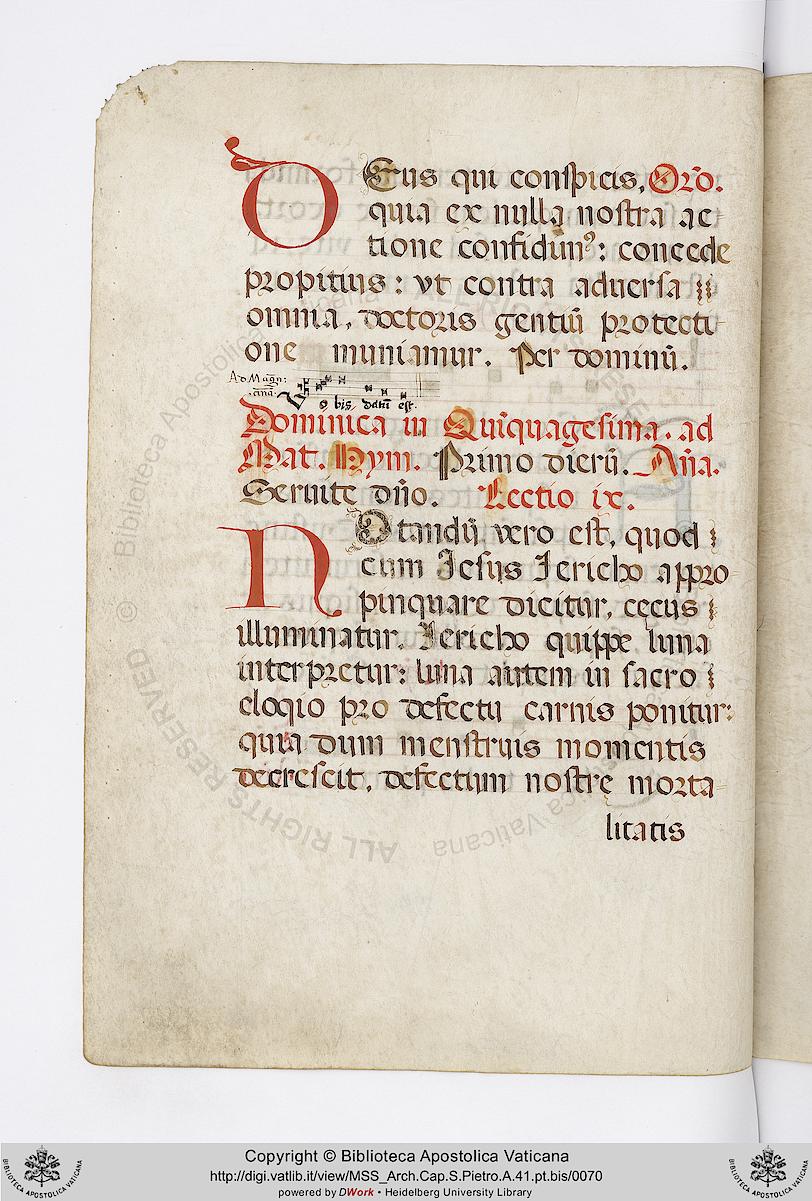 DEus qui conspicis, Orõ.
quia ex nulla nostra ac
tione confidimꝰ: concede
propitius: vt contra aduersa
omnia, doctoris gentiũ protecti
one muniamur. Per dominũ.
Ad Magñ:
añã. Vobis datũ est.
Dominica in Quĩquagesima. ad
Mat. Hym. Primo dierũ. Añа.
Seruite dño. Lectio ix.
NOtandũ vero est, quod
cum Jesus Jericho appro
pinquare dicitur, cecus
illuminatur. Jericho quippe luna
interpretur: luna autem in sacro
eloqio pro defectu carnis ponitur:
quia dum menstruis momentis
decrescit, defectum nostrę morta
litatis
© Biblioteca Apostolica Vaticana
ALL RIGHTS RESERVED
Copyright © Biblioteca Apostolica Vaticana
http://digi.vatlib.it/view/MSS_Arch.Cap.S.Pietro.A.41.pt.bis/0070
powered by DWork • Heidelberg University Library
BIBLIOTECA APOSTOLICA VATICANA
BIBLIOTECA APOSTOLICA VATICANA